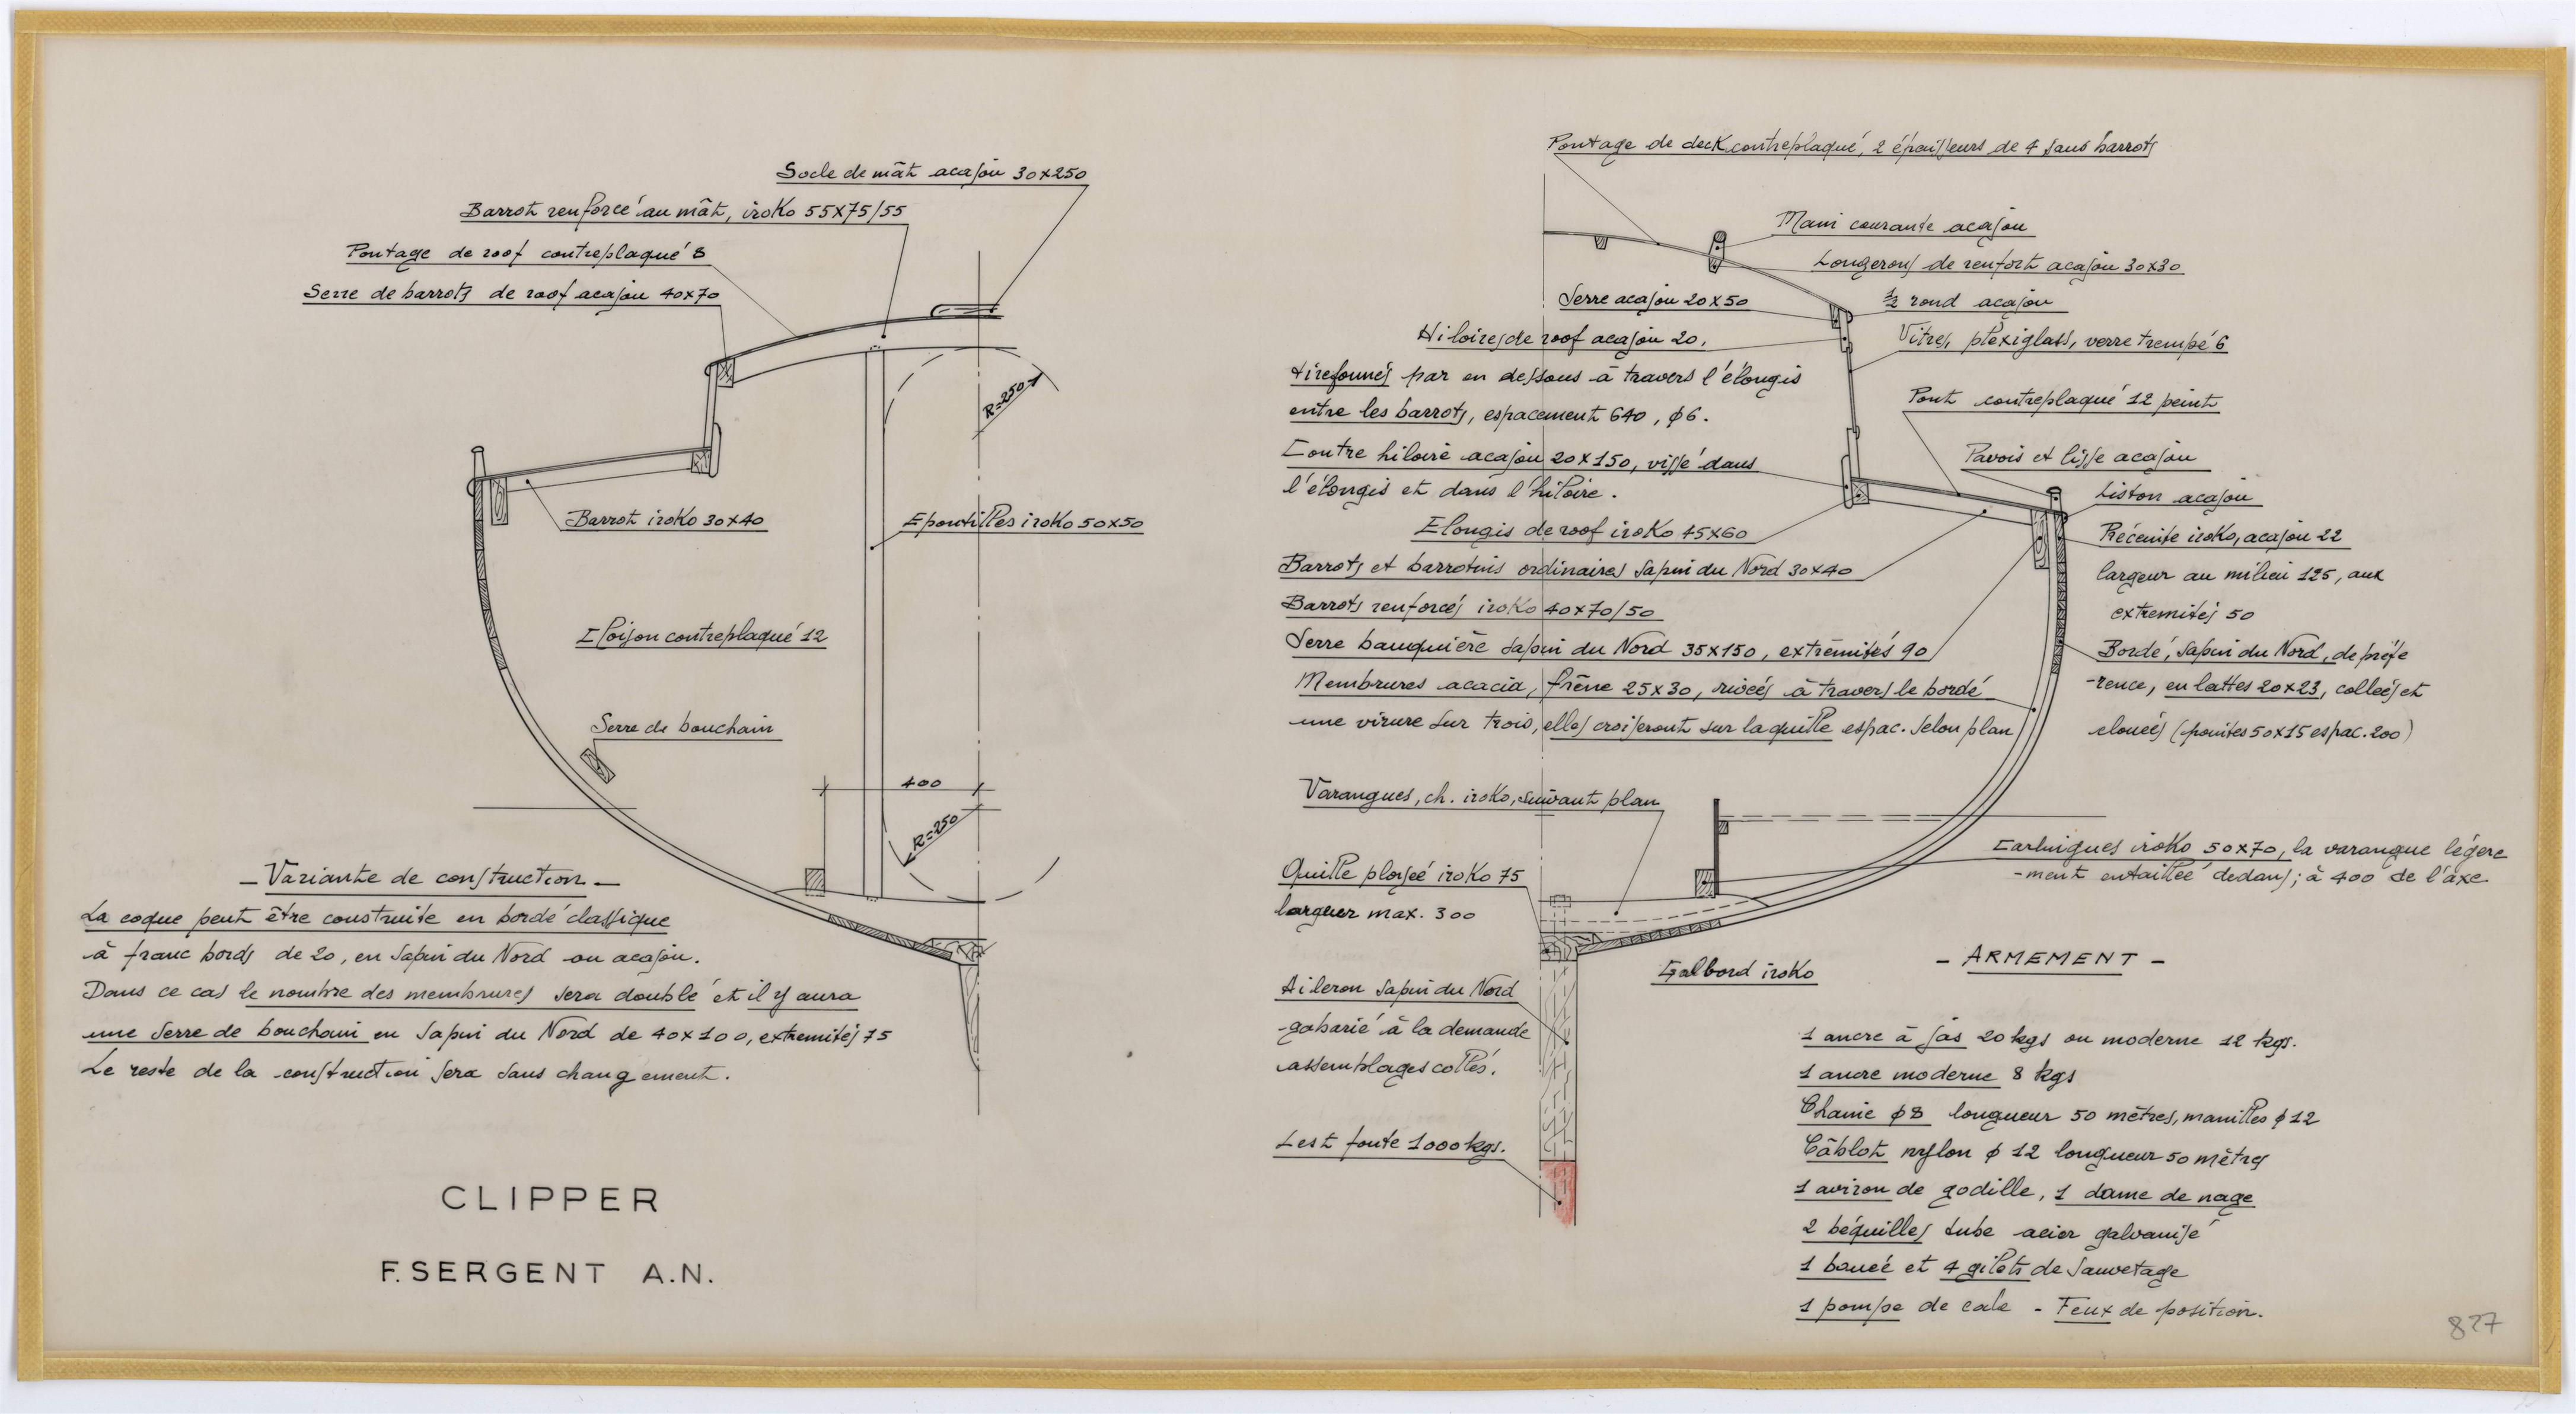 Socle de mât acajou 30x250
Barrot renforcé au mât, iroko 55x75/55
Pontage de roof contreplaqué 8
Serre de barrots de roof acajou 40x70
R=250
Barrot iroko 30x40
Epontilles iroko 50x50
Cloison contreplaqué 12
Serre de bouchain
400
R=250
- Variante de construction -
La coque peut être construite en bordé classique
à franc bords de 20, en Sapin du Nord ou acajou.
Dans ce cas le nombre des membrures sera doublé et il y aura
une Serre de bouchain en Sapin du Nord de 40x100, extremités 75
Le reste de la construction sera sans changement.
CLIPPER
F. SERGENT A.N.
Pontage de deck contreplaqué, 2 épaisseurs de 4 sans barrots
Main courante acajou
Longerons de renfort acajou 30x30
Serre acajou 20x50
½ rond acajou
Hiloires de roof acajou 20,
tirefonnés par en dessous à travers l'élongis
entre les barrots, espacement 640, ϕ6.
Vitres, plexiglass, verre trempé 6
Pont contreplaqué 12 peint
Contre hiloire acajou 20x150, vissé dans
l'élongis et dans l'hiloire.
Pavois et lisse acajou
Liston acajou
Elongis de roof iroko 45x60
Précinte iroko, acajou 22
largeur au milieu 125, aux
extremités 50
Barrots et barrotins ordinaires Sapin du Nord 30x40
Barrots renforcés iroko 40x70/50
Serre bauquière Sapin du Nord 35x150, extrémités 90
Membrures acacia, frêne 25x30, rivées à travers le bordé
une virure sur trois, elles croiseront sur la quille espac. selon plan
Bordé, Sapin du Nord, de préfé
-rence, en lattes 20x23, collées et
clouées (pointes 50x15 espac. 200)
Varangues, ch. iroko, suivant plan
Carlingues iroko 50x70, la varangue légère
-ment entaillée dedans; à 400 de l'axe.
Quille ployée iroko 75
largeur max. 300
Galbord iroko
Aileron Sapin du Nord
-gabarié à la demande
assemblages collés.
Lest fonte 1000kgs.
- ARMEMENT -
1 ancre à jas 20 kgs ou moderne 12 kgs.
1 ancre moderne 8 kgs
Chaine ϕ8 longueur 50 mètres, manilles ϕ12
Câblot nylon ϕ 12 longueur 50 mètres
1 aviron de godille, 1 dame de nage
2 béquilles tube acier galvanisé
1 bouée et 4 gilets de Sauvetage
1 pompe de cale - Feux de position.
827